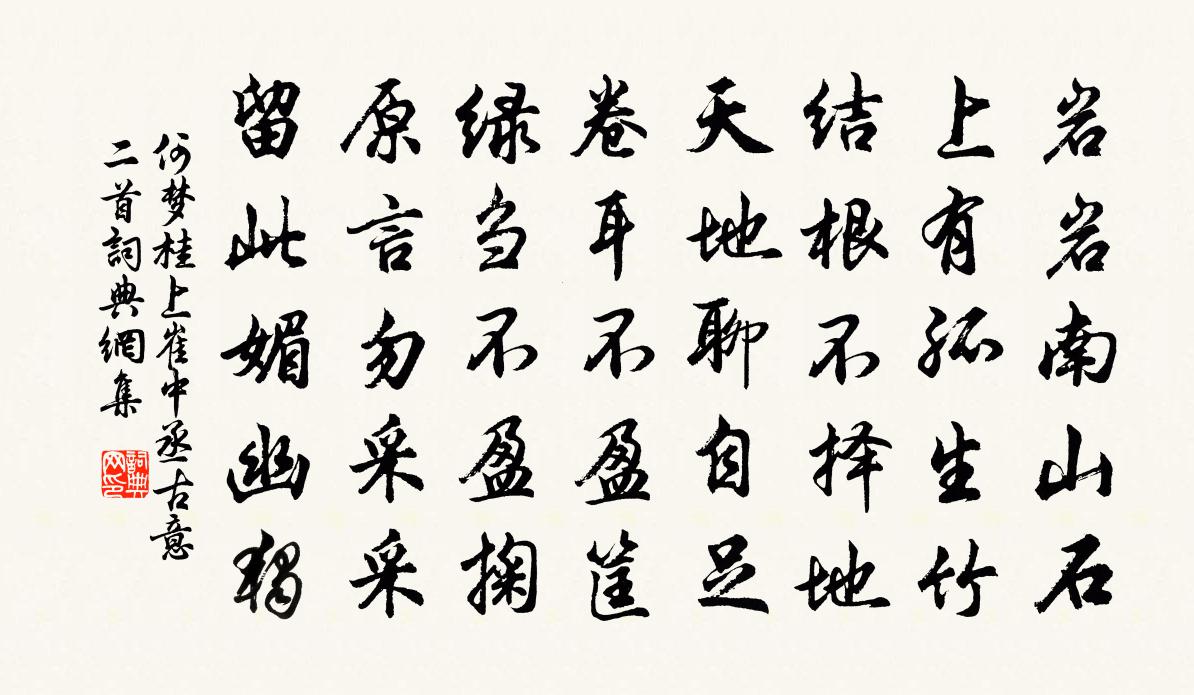 岩岩南山石
上有孤生竹
结根不择地
天地聊自足
卷耳不盈筐
绿刍不盈掬
原言勿采采
留此媚幽独
何梦桂上崔中丞古意
二首詞典網集
詞典网印